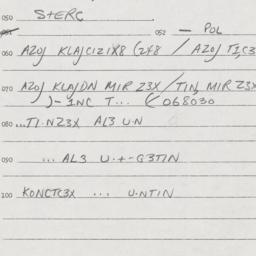 050 STERC
051 052 — POL
060 AZOJ KLAJCIZIX8 (2F8 / AZOJ TI,C3
070 AZOJ KLAJDN MIR Z3X / TIN, MIR Z3X
)- INC T... (068030
080 ...TI.NZ3X AL3 U.N
090 ... AL3 U.+-G3TIN
100 KONCTC3X ... U.NTIN